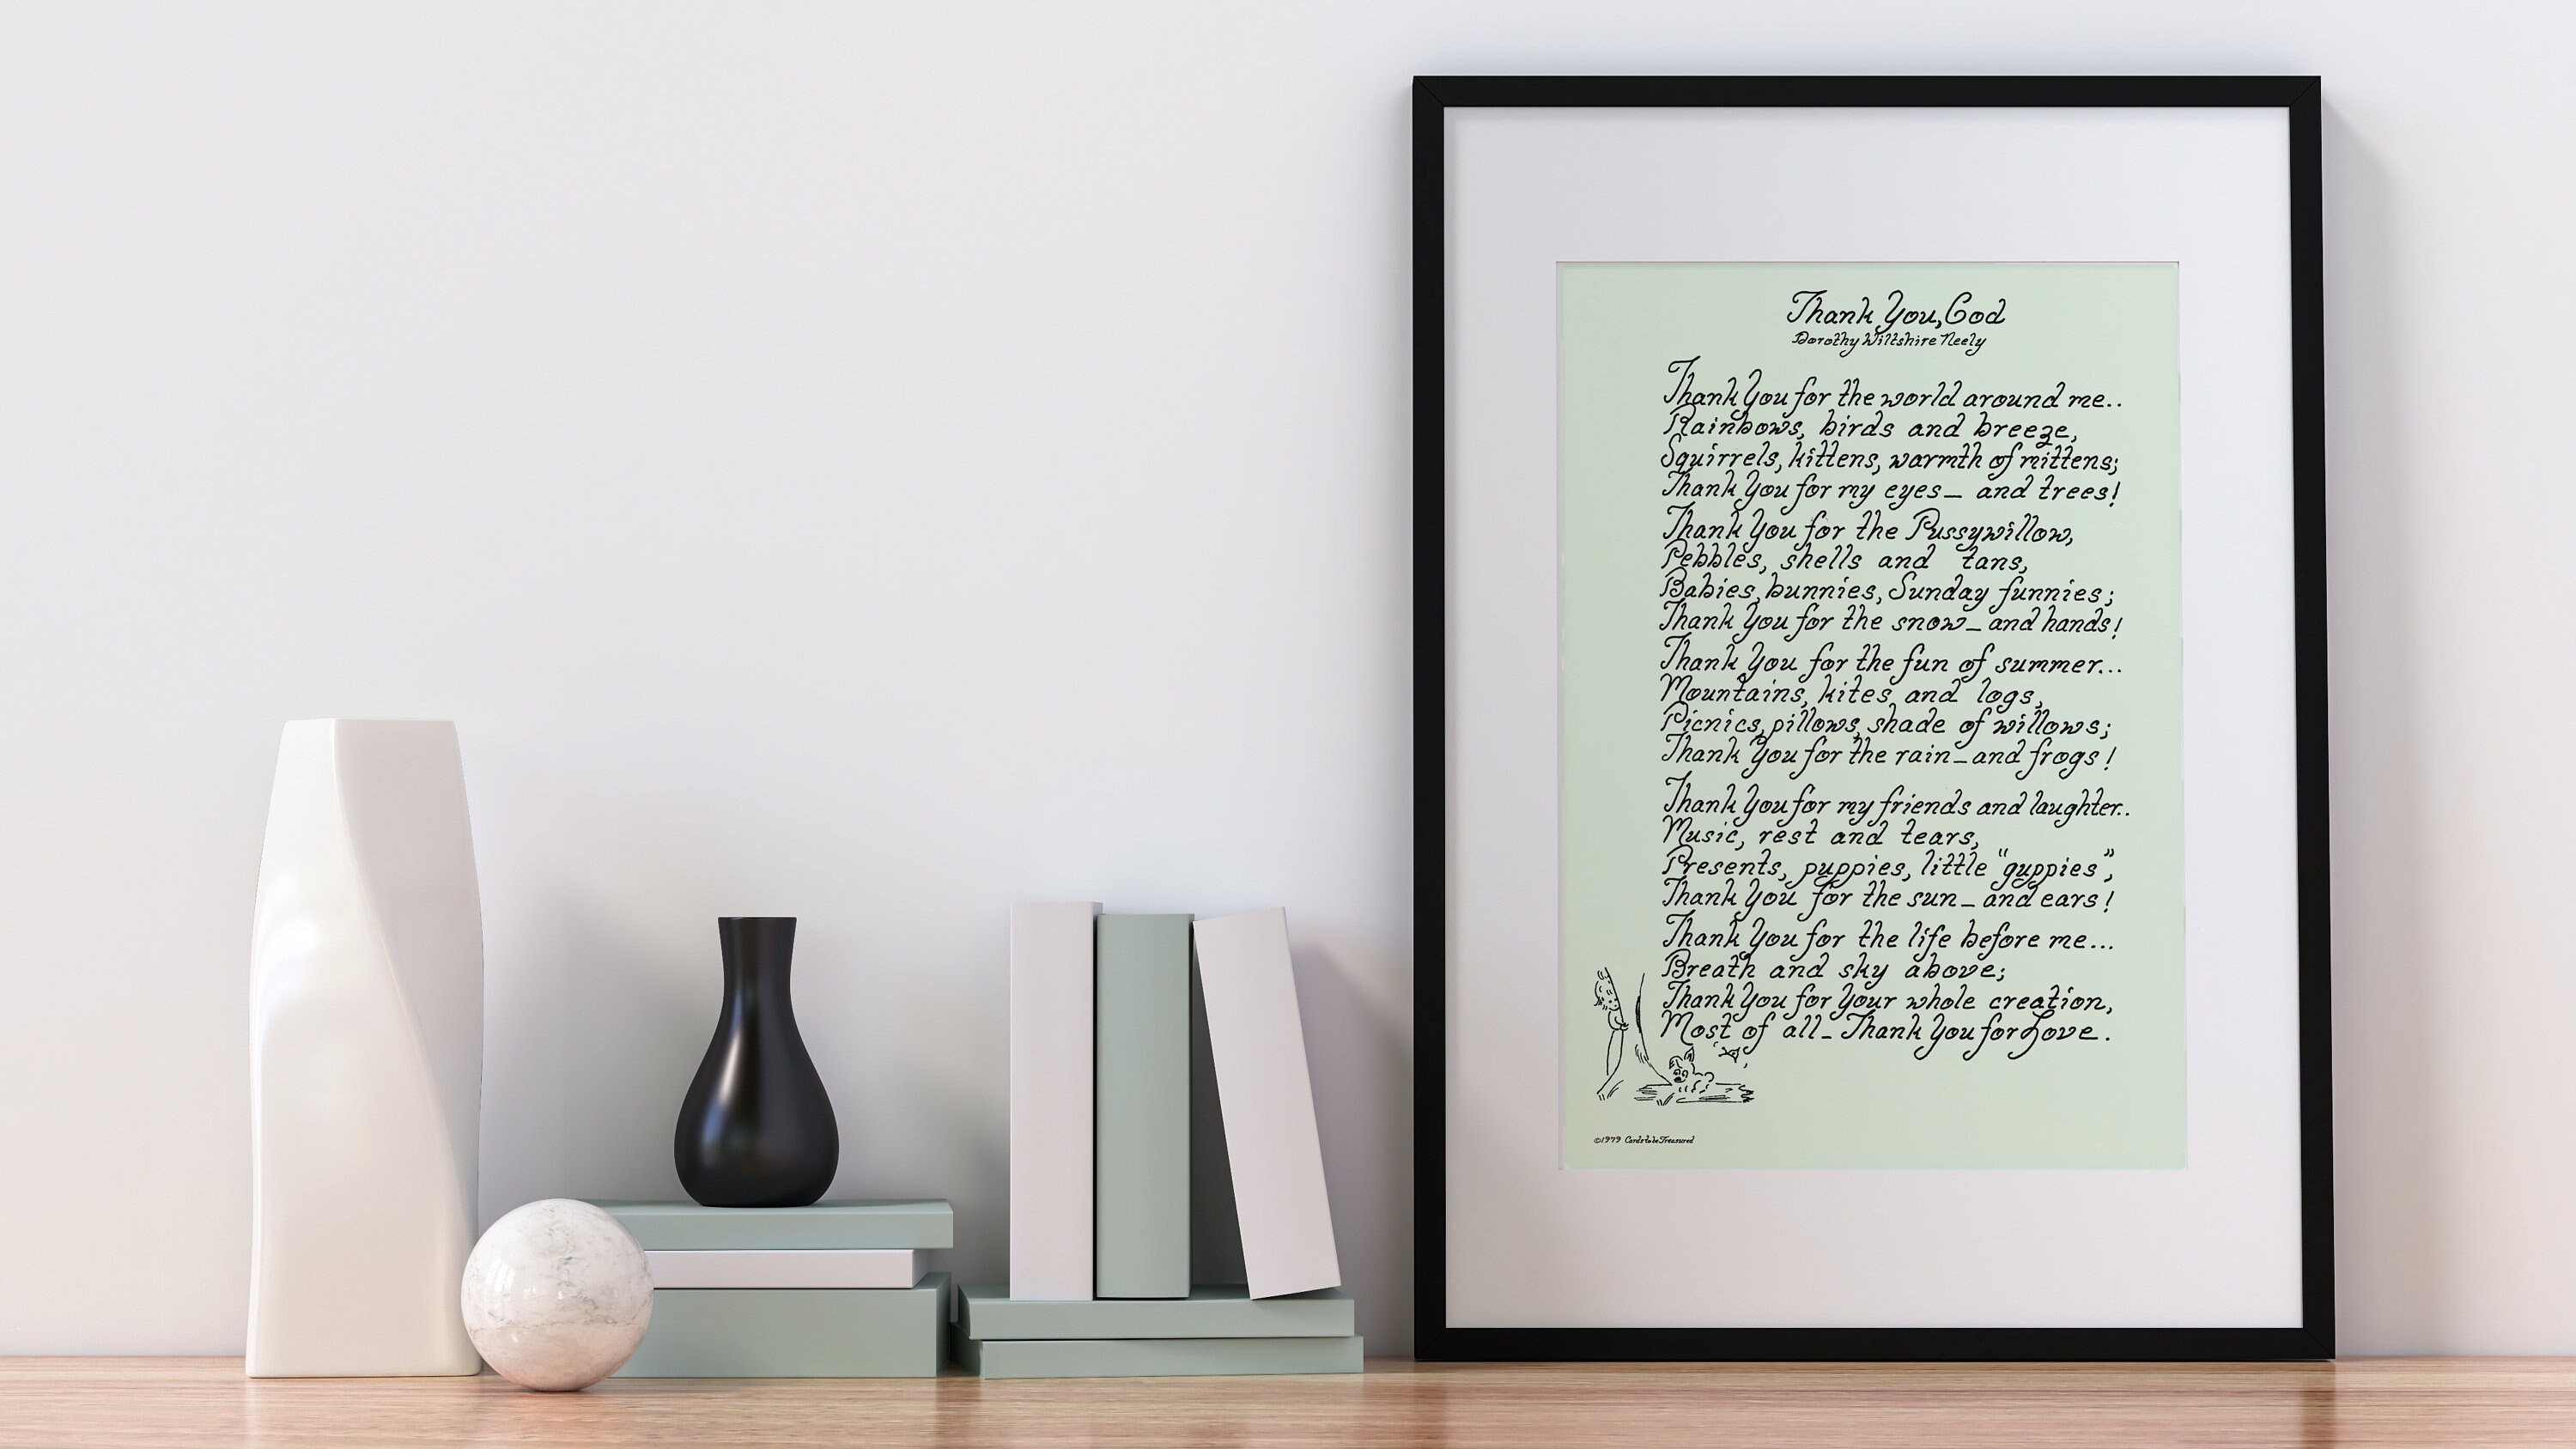 Thank You, God
Dorothy Wiltshire Neely
Thank You for the world around me..
Rainbows, birds and breeze,
Squirrels, kittens, warmth of mittens;
Thank You for my eyes_ and trees!
Thank You for the Pussywillow,
Pebbles, shells and tans,
Babies, bunnies, Sunday funnies;
Thank You for the snow_and hands!
Thank You for the fun of summer...
Mountains, kites and logs,
Picnics, pillows, shade of willows;
Thank You for the rain_and frogs!
Thank You for my friends and laughter..
Music, rest and tears,
Presents, puppies, little "guppies",
Thank You for the sun_ and ears!
Thank You for the life before me...
Breath and sky above;
Thank You for Your whole creation,
Most of all_ Thank You for Love.
©1979 Cards to be Treasured